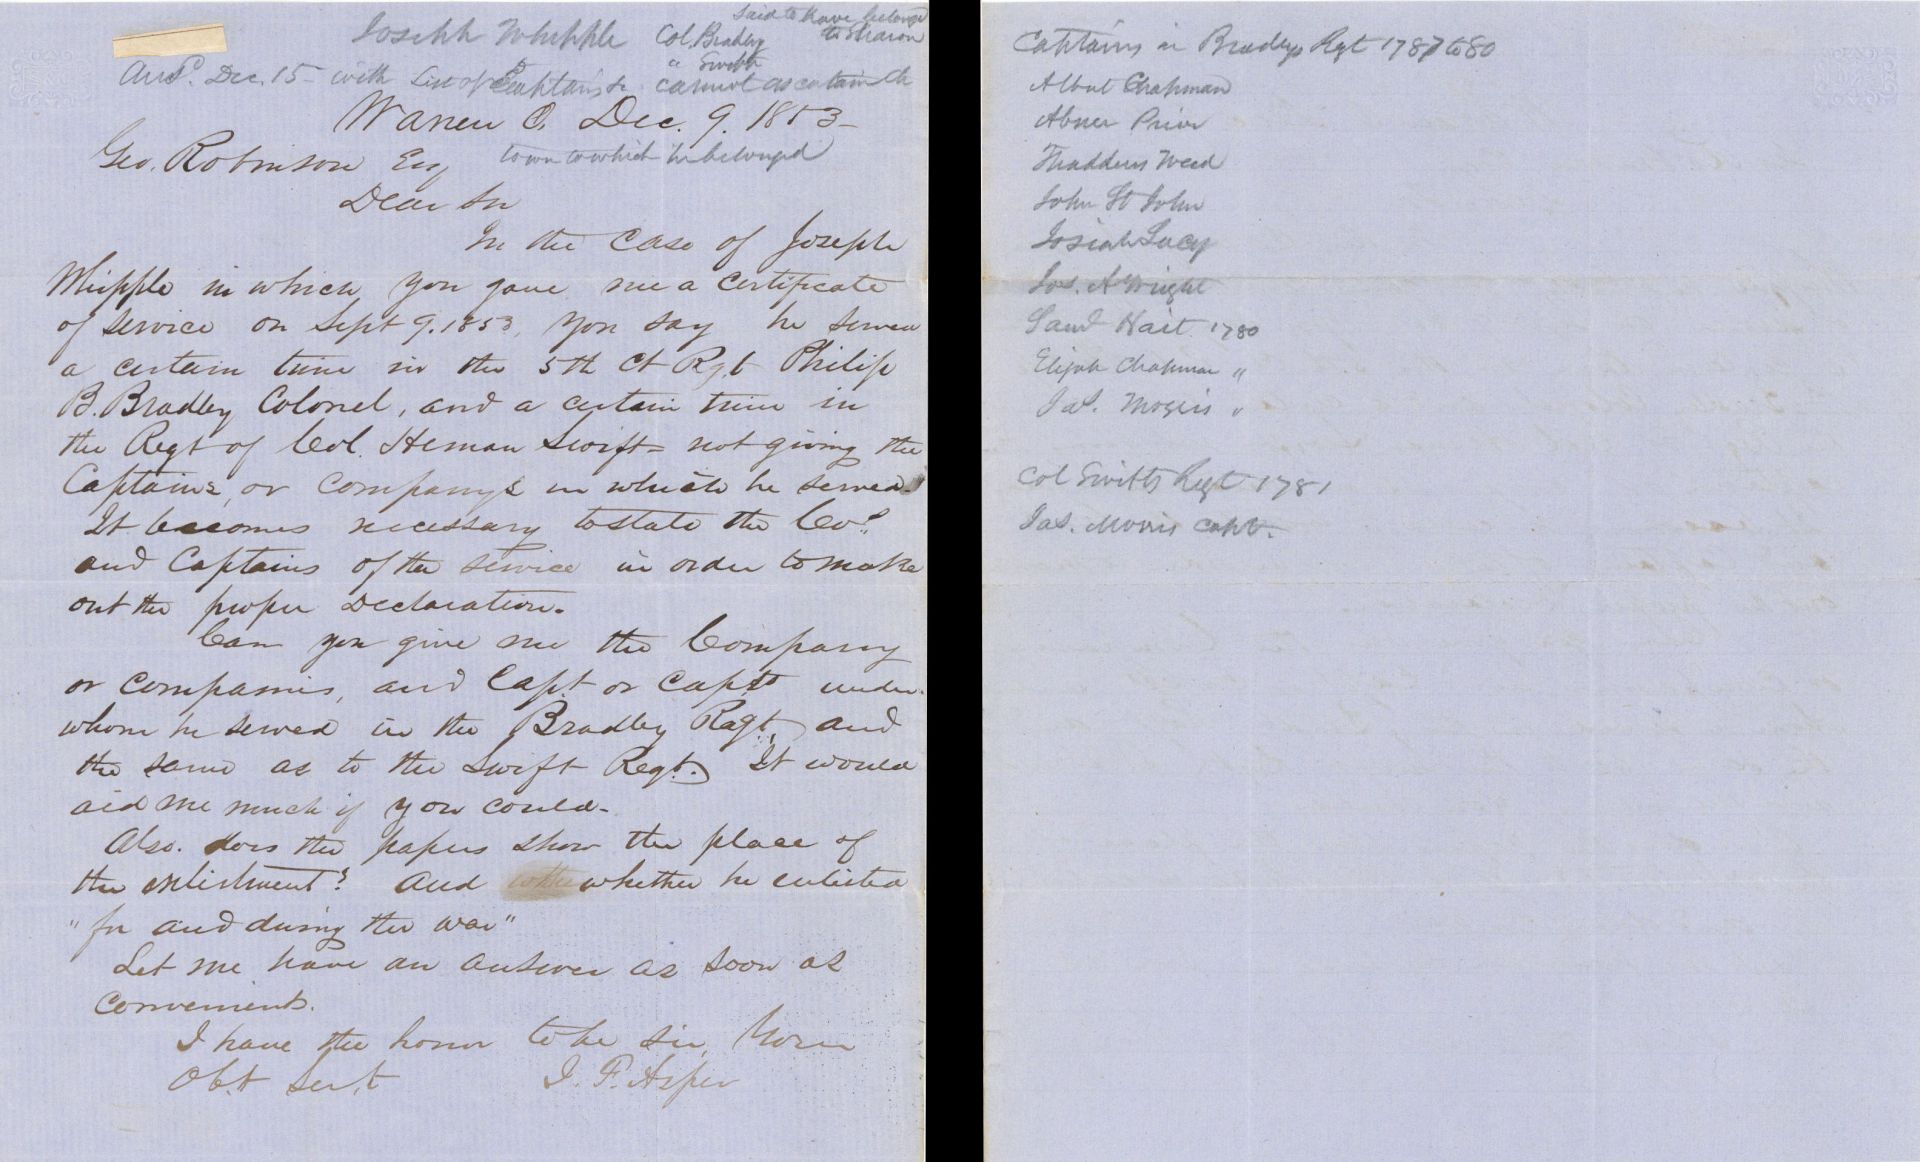 Joseph Whipple Col. Bradley said to have belonged
" Swift to Sharon
Ansd. Dec. 15 - with List of Captains &c cannot ascertain the
Warren O. Dec. 9. 1853 -
town to which he belonged
Geo. Robinson Esq
Dear Sir
In the case of Joseph
Whipple in which you gave me a certificate
of service on Sept 9. 1853, you say he served
a certain time in the 5th Ct Rgt Philip
B. Bradley Colonel, and a certain time in
the Regt of Col. Heman Swift - not giving the
Captains, or companys in which he served.
It becomes necessary to state the Cos.
and Captains of the service in order to make
out the proper declaration.
Can you give me the Company
or companies, and Capt. or Capts under
whom he served in the Bradley Regt, and
the same as to the Swift Regt. It would
aid me much if you could.
Also. does the papers show the place of
the enlistment? And whether he enlisted
"for and during the war"
Let me have an answer as soon as
convenient.
I have the honor to be sir, Your
Obt Servt J. F. Asper
Captains in Bradleys Rgt 1787 to 80
Albert Chapman
Abner Prior
Thaddeus Weed
John St John
Josiah Lacy
Jos. A Wright
Saml Hait 1780
Elijah Chapman "
Jas. Morris "
Col Swifts Regt 1781
Jas. Morris Capt.